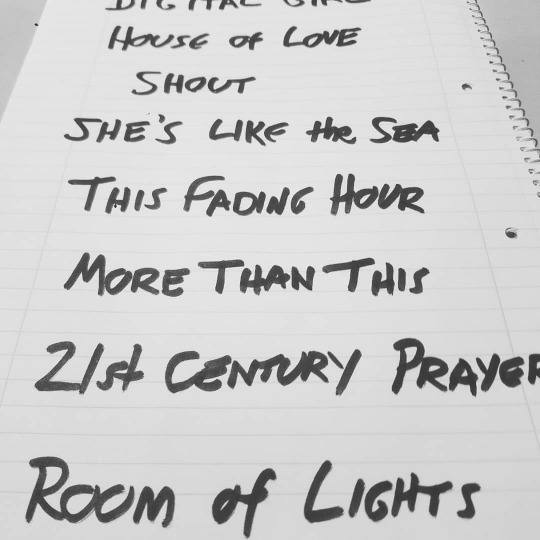 DIGITAL GIRL
HOUSE of LOVE
SHOUT
SHE'S LIKE the SEA
THIS FADING HOUR
MORE THAN THIS
21st CENTURY PRAYER
ROOM of LIGHTS